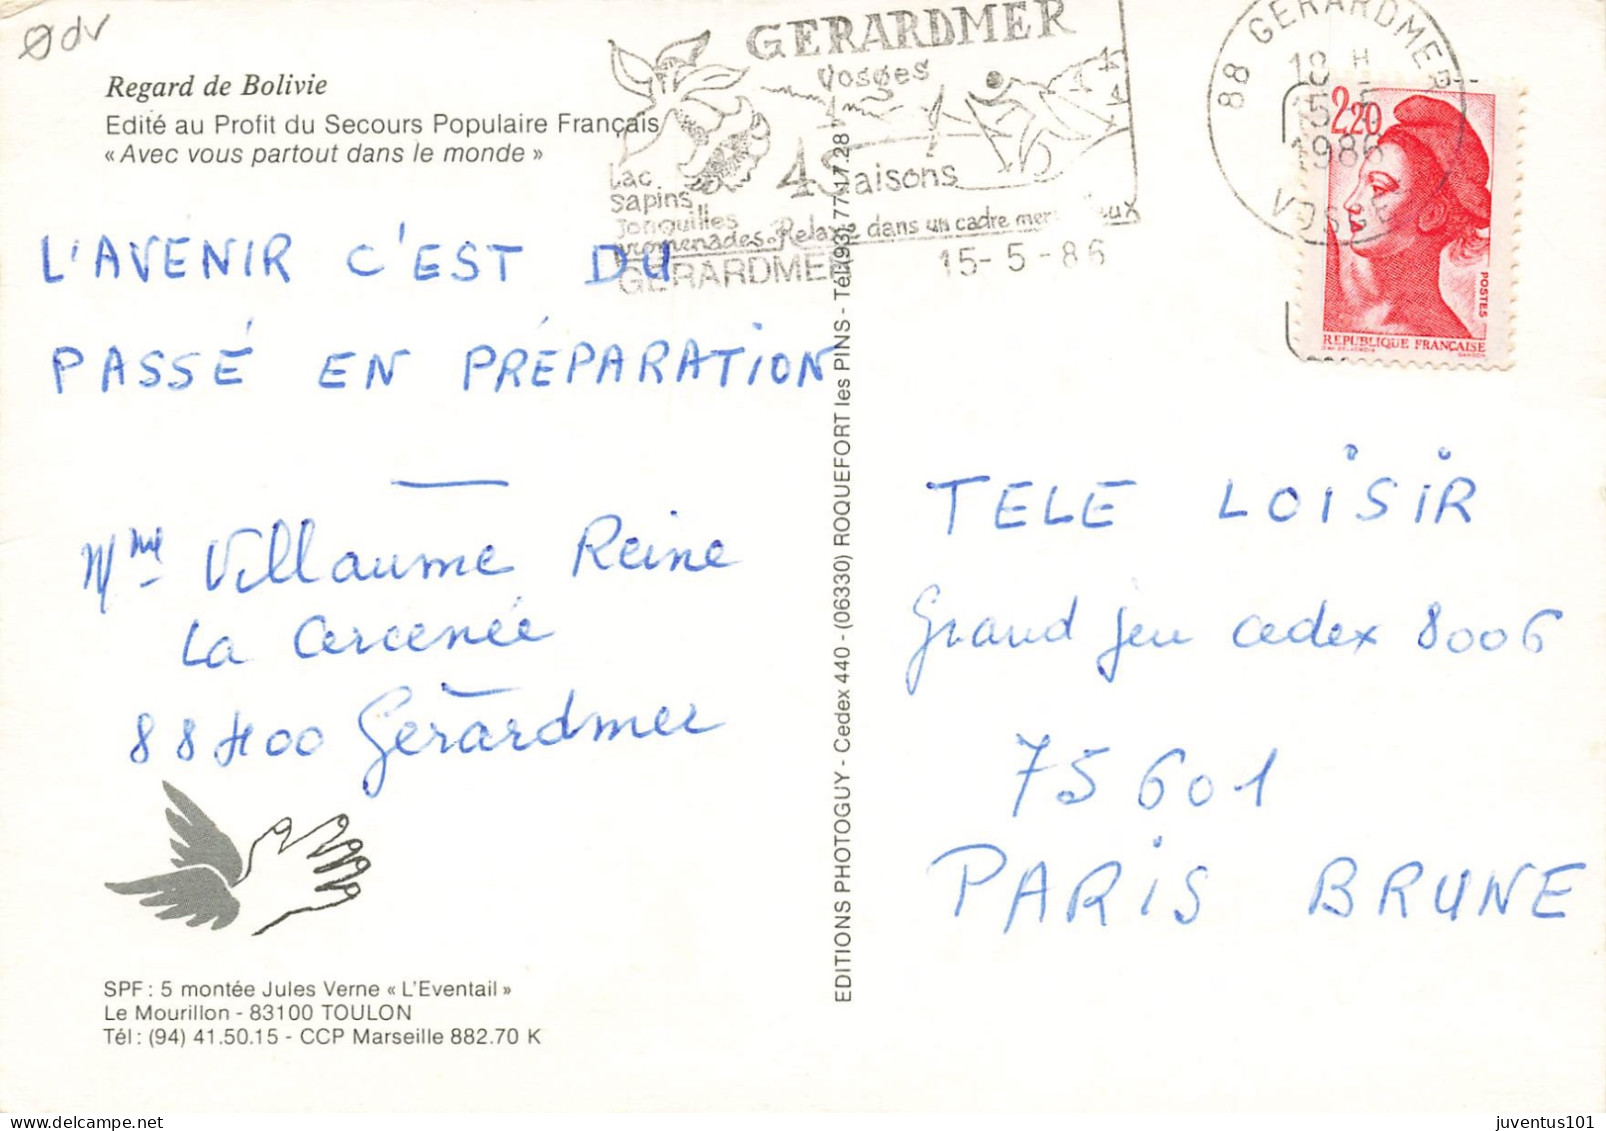 Ødv
Regard de Bolivie
Edité au Profit du Secours Populaire Français
« Avec vous partout dans le monde »
GERARDMER
Vosges
4 Saisons
Lac
Sapins
Jonquilles
Promenades-Relaxe dans un cadre merveilleux
GERARDMER 15-5-86
88 GERARDMER
18 H
15-5
1986
VOSGES
2,20
POSTES
REPUBLIQUE FRANÇAISE
L'AVENIR C'EST DU
PASSÉ EN PRÉPARATION
Mme Villaume Reine
La Cercenée
88400 Gérardmer
TELE LOISIR
Grand jeu cedex 8006
75601
PARIS BRUNE
EDITIONS PHOTOGUY - Cedex 440 - (06330) ROQUEFORT les PINS - Tél. (93) 77.17.28
SPF : 5 montée Jules Verne « L'Eventail »
Le Mourillon - 83100 TOULON
Tél : (94) 41.50.15 - CCP Marseille 882.70 K
juventus101